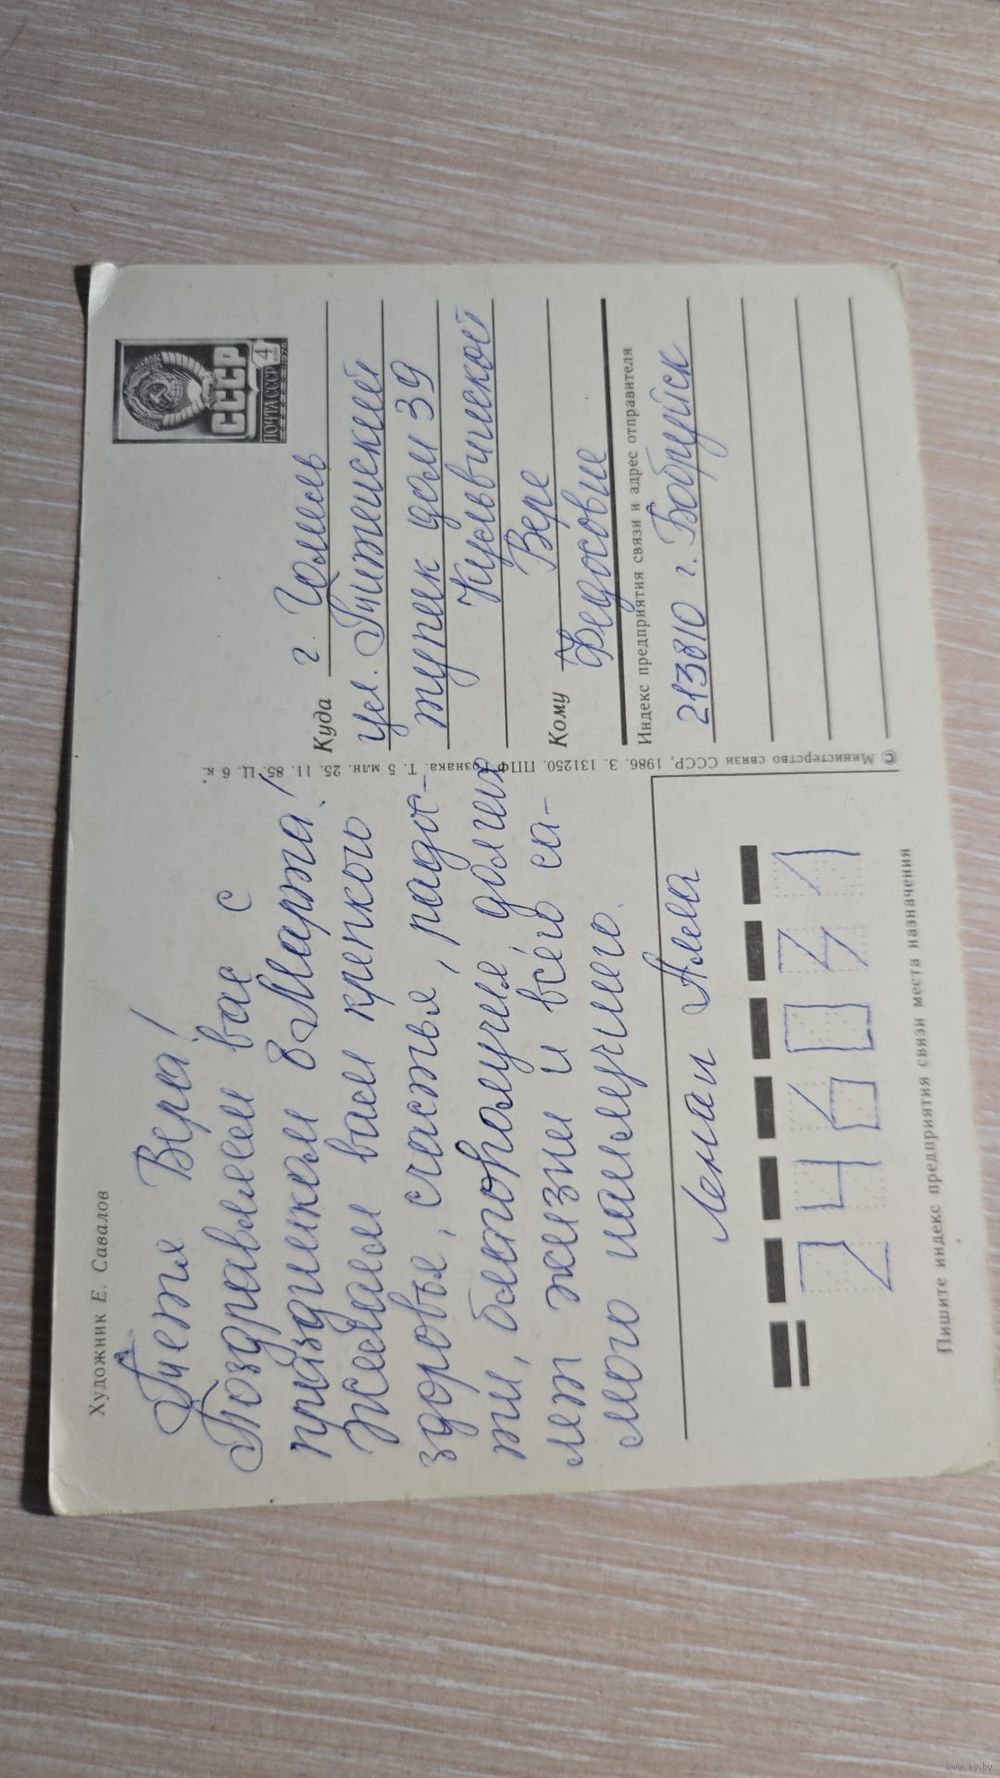 Художник Е. Савалов
Тетя Вера!
Поздравляем вас с
праздником 8 Марта!
Желаем вам крепкого
здоровья, счастья, радос-
ти, благополучия, долгих
лет жизни и всего са-
мого наилучшего.
Алла
246031
Пишите индекс предприятия связи места назначения
© Министерство связи СССР, 1986. З. 131250. ППФ Гознака. Т. 5 млн. 25. 11. 85. Ц. 6 к.
ПОЧТА СССР 4 коп
СССР
Куда г. Гомель
ул.
тупик дом 39
Кому Вере
Федосовне
Индекс предприятия связи и адрес отправителя
213810 г. Бобруйск
www.ay.by